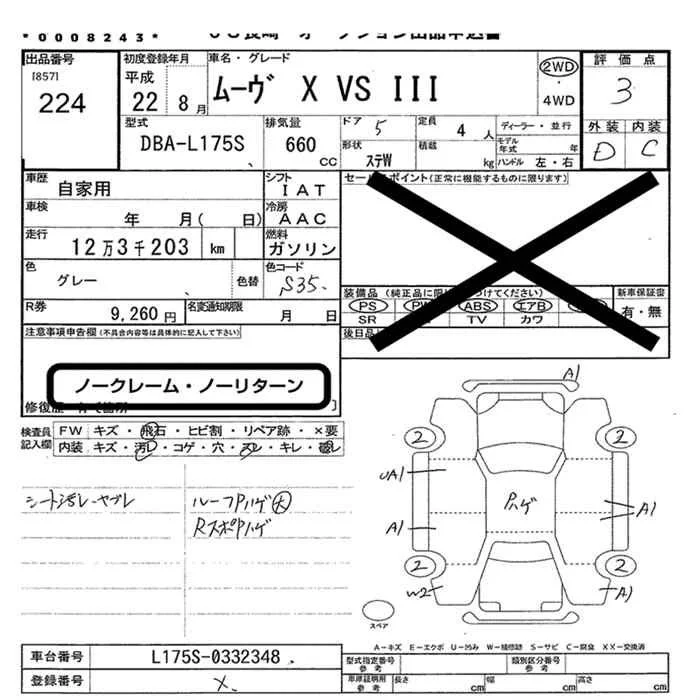 *0008243*
出品番号
[857]
224
初度登録年月
平成
22 8月
車名・グレード
ムーヴ X VS III
2WD
・
4WD
評価点
3
外装 内装
D C
型式
DBA-L175S
排気量
660
cc
ドア 5
形状
ステW
定員 4 人
積載 kg
ディーラー・並行
モデル年式 年
ハンドル 左・右
車歴
自家用
シフト
IAT
車検
年 月( 日)
冷房
AAC
走行
12万3千203 km
燃料
ガソリン
色
グレー
色替
色コード
S35
R券
9,260円
名変通知期限
月 日
セールスポイント(正常に機能するものに限ります)
装備品
PS PW ABS エアB
SR TV カワ
新車保証書
有・無
後日品
注意事項申告欄(不具合内容等は具体的に記入して下さい)
ノークレーム・ノーリターン
修復歴
検査員記入欄
FW キズ・飛石・ヒビ割・リペア跡・×要
内装 キズ・汚レ・コゲ・穴・スレ・キレ・破レ
シート汚レ・ヤブレ
ルーフPハゲ大
RスポPハゲ
A1
2 2
UA1
Pハゲ
A1
A1
2 2
W2
A1
スペア
A-キズ E-エクボ U-凹み W-補修跡 S-サビ C-腐食 XX-交換済
車台番号
L175S-0332348
登録番号
×
型式指定番号
参考
類別区分番号
参考
車庫証明用
参考
長さ cm
幅 cm
高さ cm